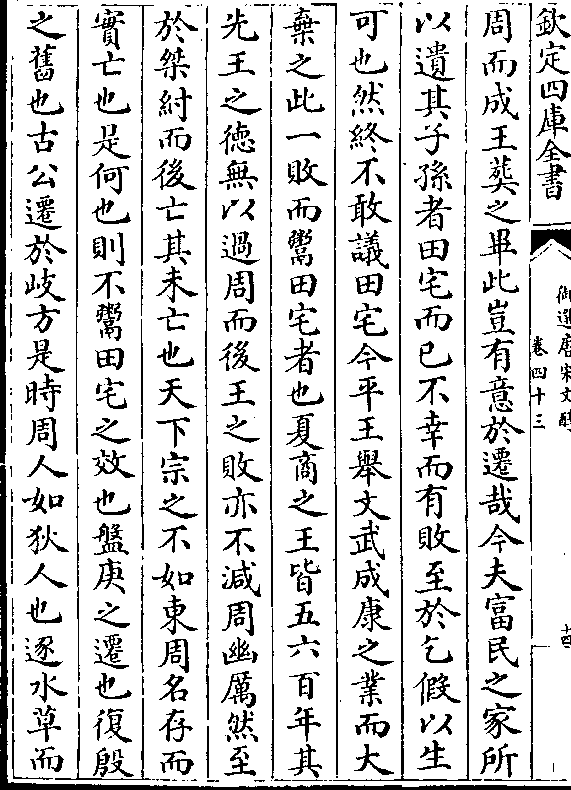 欽定四庫全書
御選唐宋文醇
卷四十三
十四
周而成王葬之畢此豈有意於遷哉今夫富民之家所
以遺其子孫者田宅而已不幸而有敗至於乞假以生
可也然終不敢議田宅今平王舉文武成康之業而大
棄之此一敗而鬻田宅者也夏商之王皆五六百年其
先王之德無以過周而後王之敗亦不減周幽厲然至
於桀紂而後亡其未亡也天下宗之不如東周名存而
實亡也是何也則不鬻田宅之效也盤庚之遷也復殷
之舊也古公遷於岐方是時周人如狄人也逐水草而